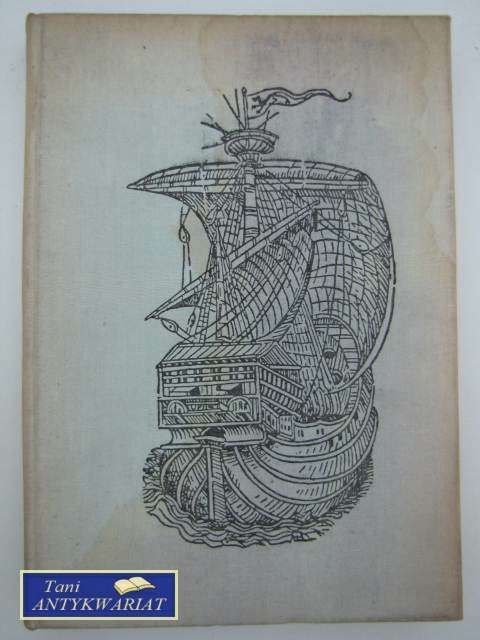 Tani
ANTYKWARIAT